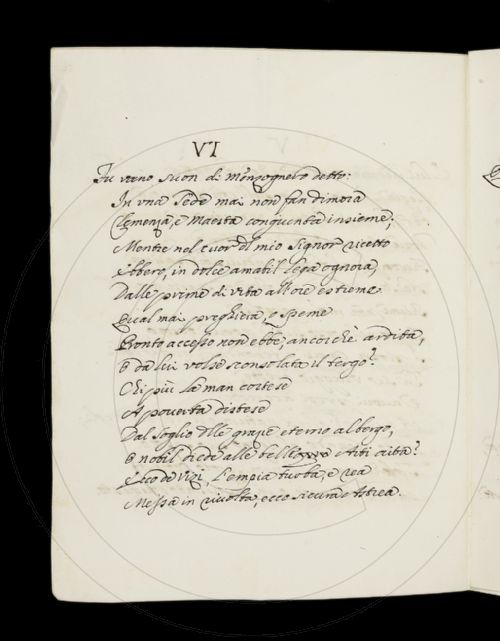 VI
Fu vano suon di Menzognero detto:
In una Sede mai non fan dimora
Clemenza, e Maestà congiunta insieme;
Mentre nel cuor del mio Signor ricetto
Ebbero, in dolce amabil lega ognora,
Dalle prime di vita all'ore estreme.
Qual mai preghiera, e speme
Pronto accesso non ebbe, ancorchè ardita,
E da lui volse sconsolata il tergo?
Chi più la man cortese
A povertà distese
Dal soglio delle grazie eterno albergo,
E nobil diede alle bell' Arti aita?
Ecco de Vizi, l'empia turba, e rea
Messa in rivolta, ecco sicura Astrea.